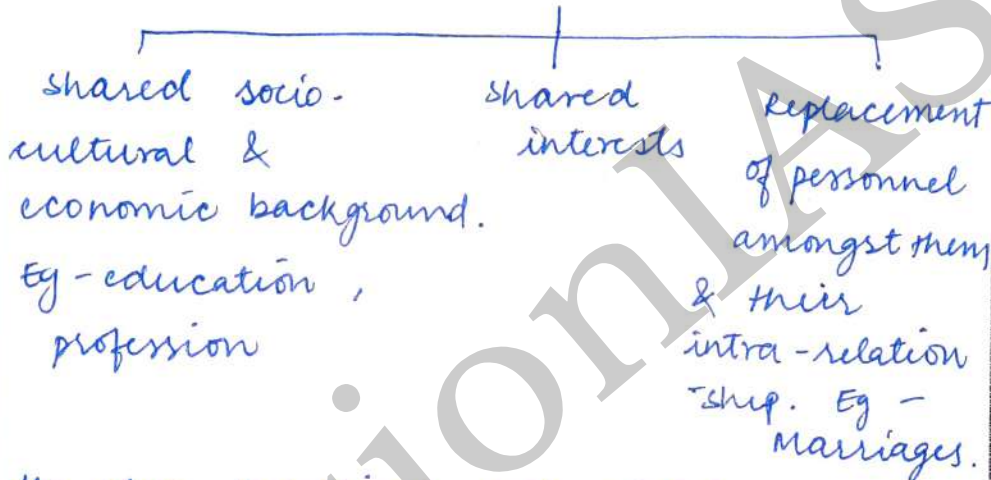 shared socio-
cultural &
economic background.
Eg - education,
profession
shared
interests
Replacement
of personnel
amongst them
& their
intra-relation
-ship. Eg -
Marriages.